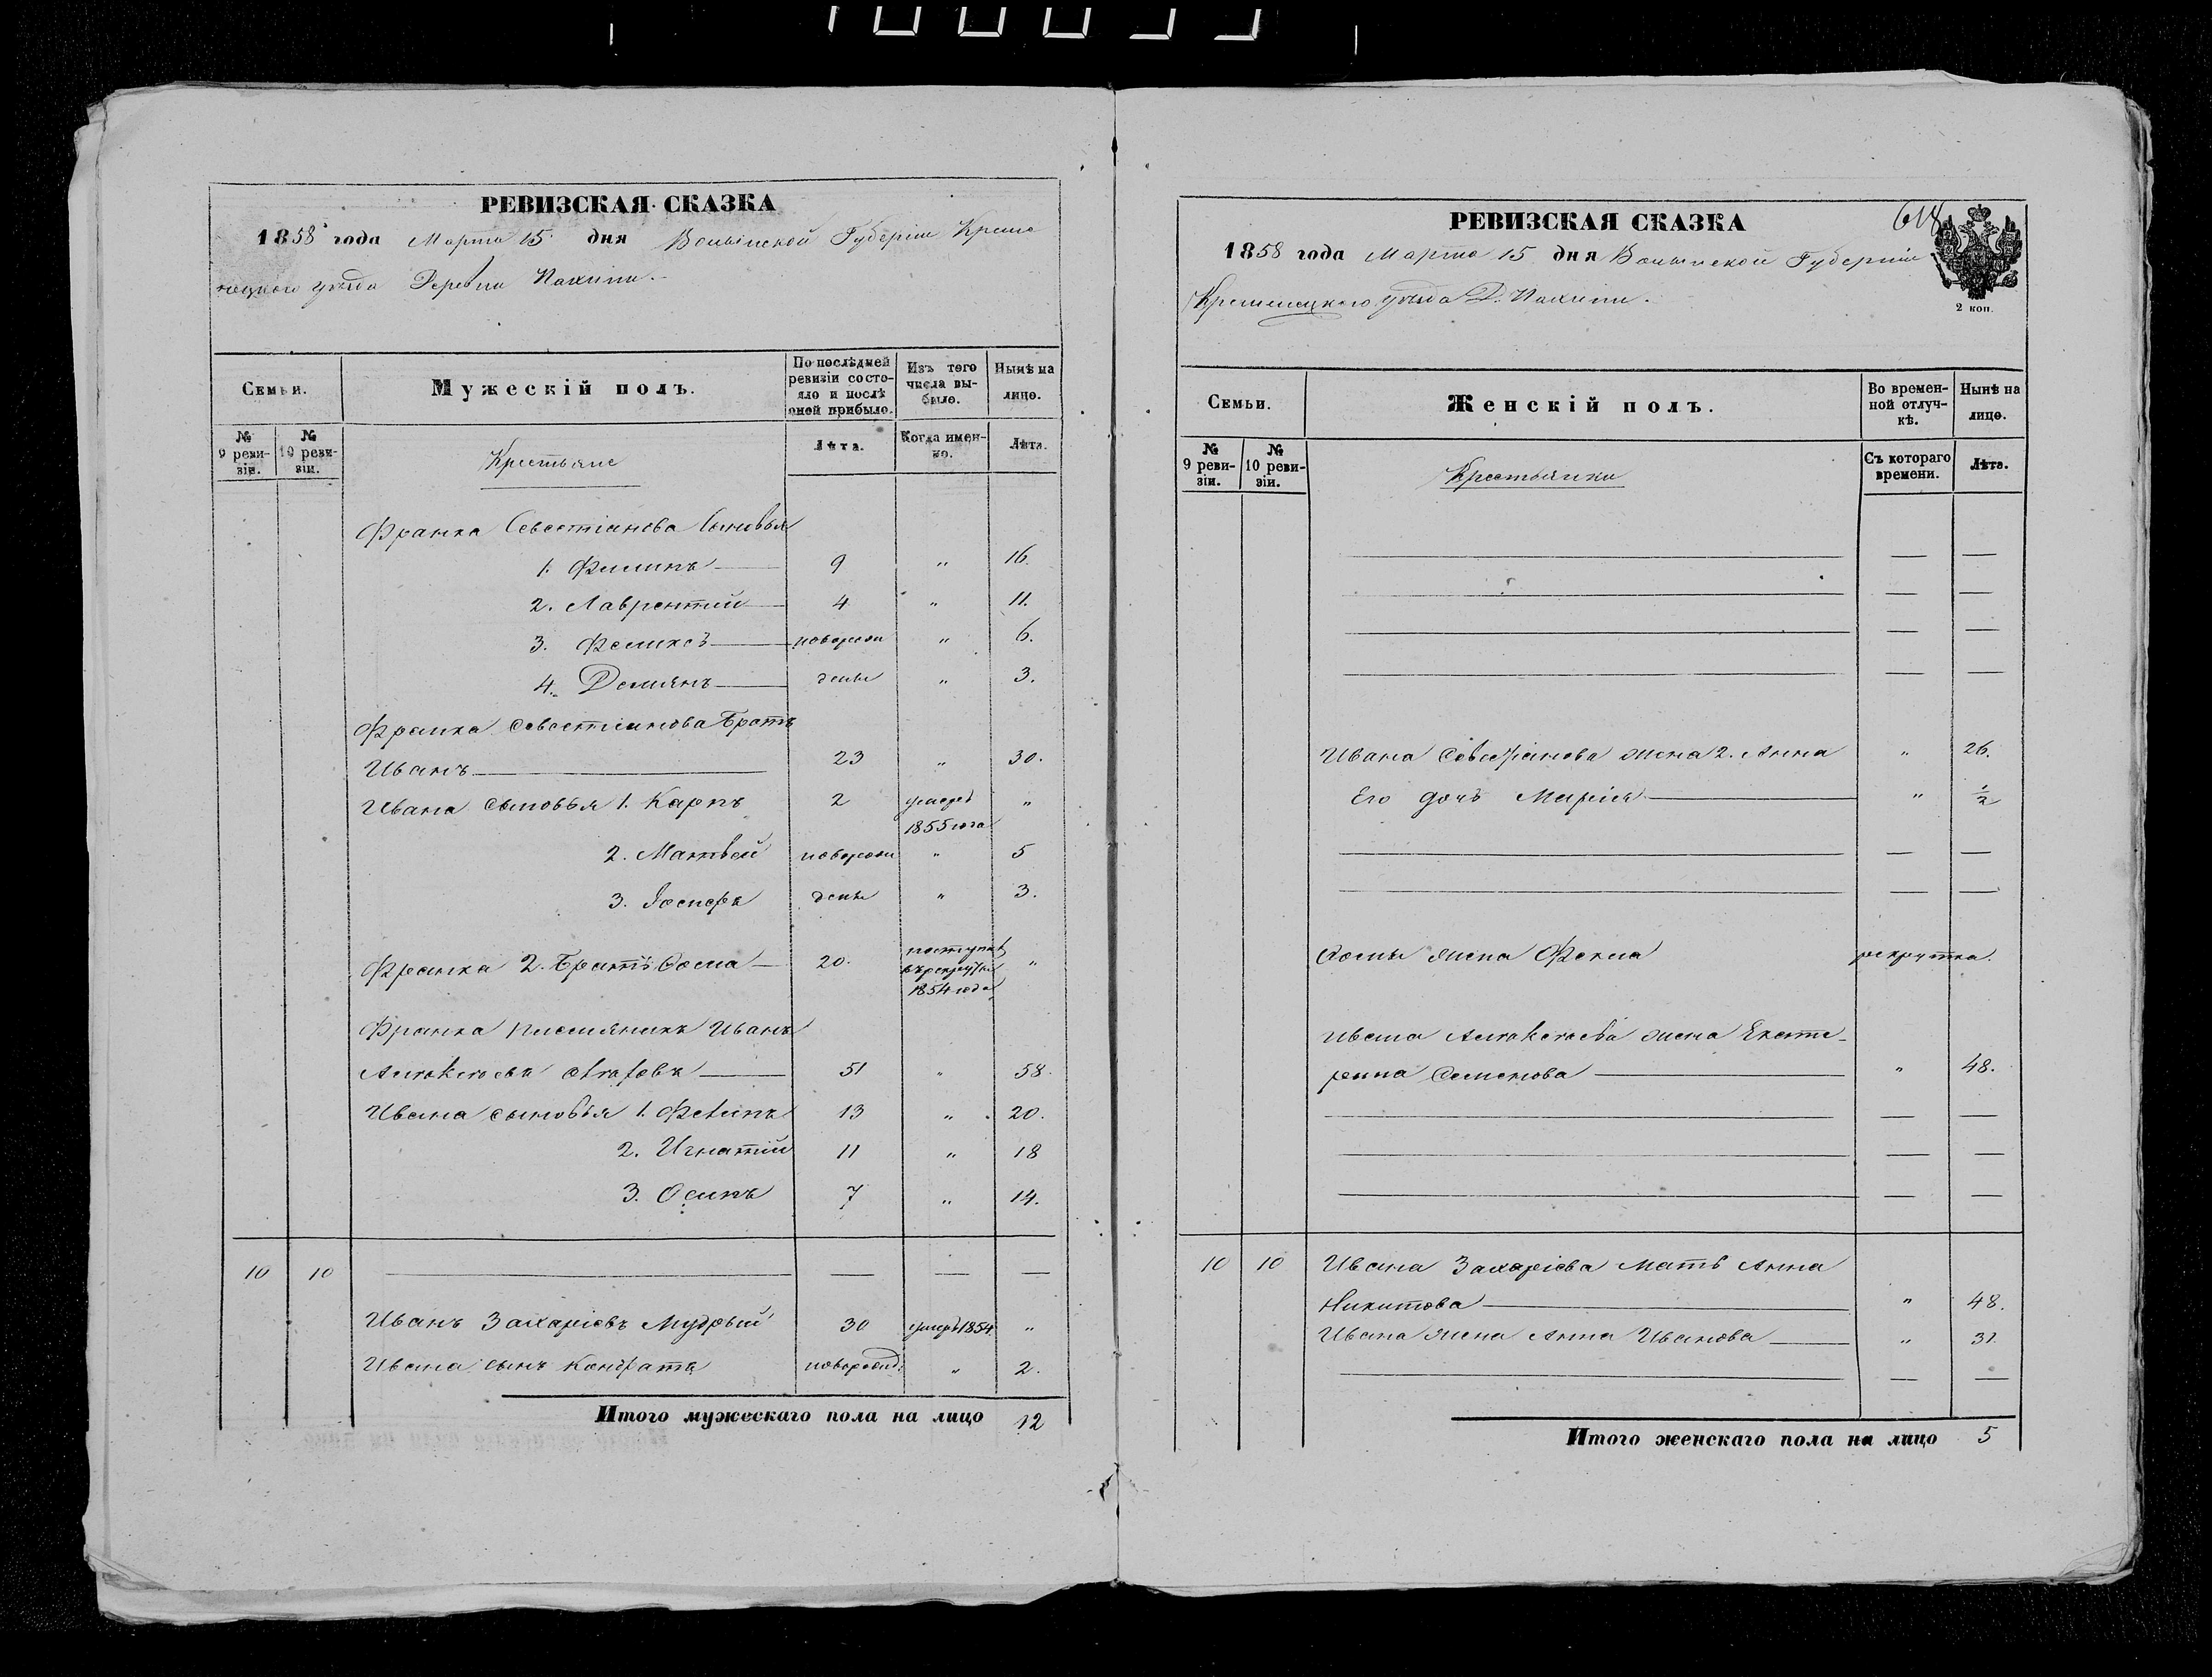 РЕВИЗСКАЯ СКАЗКА
1858 года Марта 15 дня Волынской Губерніи Креме
нецкаго уѣзда Деревни
Семьи.
Мужескій полъ.
По послѣдней ревизіи состояло и послѣ оной прибыло.
Изъ того числа выбыло.
Нынѣ на лицо.
№ 9 ревизіи.
№ 10 ревизіи.
Крестьяне
Лѣта.
Когда именно.
Лѣта.
Франка Севастіанова Сыновья
1. Филипъ 9 „ 16.
2. Лаврентий 4 „ 11.
3. Феликсъ новорож „ 6.
4. Демянъ денъ „ 3.
Франка Севастианова Братъ
Иванъ 23 „ 30.
Ивана сыновья 1. Карпъ 2 умеръ „
1855 года
2. Матвей новорож „ 5
3. Іосифъ денъ „ 3.
Франка 2. Братъ 20. поступилъ въ рекруты „
1854 года
Франка племяникъ Иванъ
51 „ 58.
Ивана сыновья 1. Филипъ 13 „ 20.
2. Игнатій 11 „ 18
3. Осипъ 7 „ 14.
10 10 — — —
Иванъ Захаріевъ Мудрый 30 умеръ 1854 „
Ивана сынъ Кондратъ новорожд: „ 2.
Итого мужескаго пола на лицо 12
РЕВИЗСКАЯ СКАЗКА
1858 года Марта 15 дня Волынской Губерніи
Кременецкаго уѣзда Д.
2 коп.
Семьи.
Женскій полъ.
Во временной отлучкѣ.
Нынѣ на лицо.
№ 9 ревизіи.
№ 10 ревизіи.
Крестьянки
Съ котораго времени.
Лѣта.
— —
— —
— —
— —
Ивана Севастіанова жена 2. Анна „ 26.
Его дочь Марія „ ½
— —
— —
жена рекрутка.
Ивана жена Екате-
рина Семенова „ 48.
— —
— —
— —
10 10 Ивана Захаріева Мать Анна
Никитова „ 48.
Ивана жена Анна Иванова „ 31.
— —
Итого женскаго пола на лицо 5